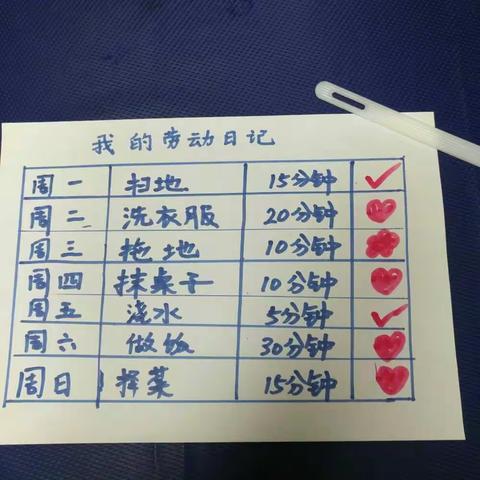 我的劳动日记
周一 扫地 15分钟 ✓
周二 洗衣服 20分钟
周三 拖地 10分钟
周四 抹桌子 10分钟
周五 浇水 5分钟 ✓
周六 做饭 30分钟
周日 择菜 15分钟